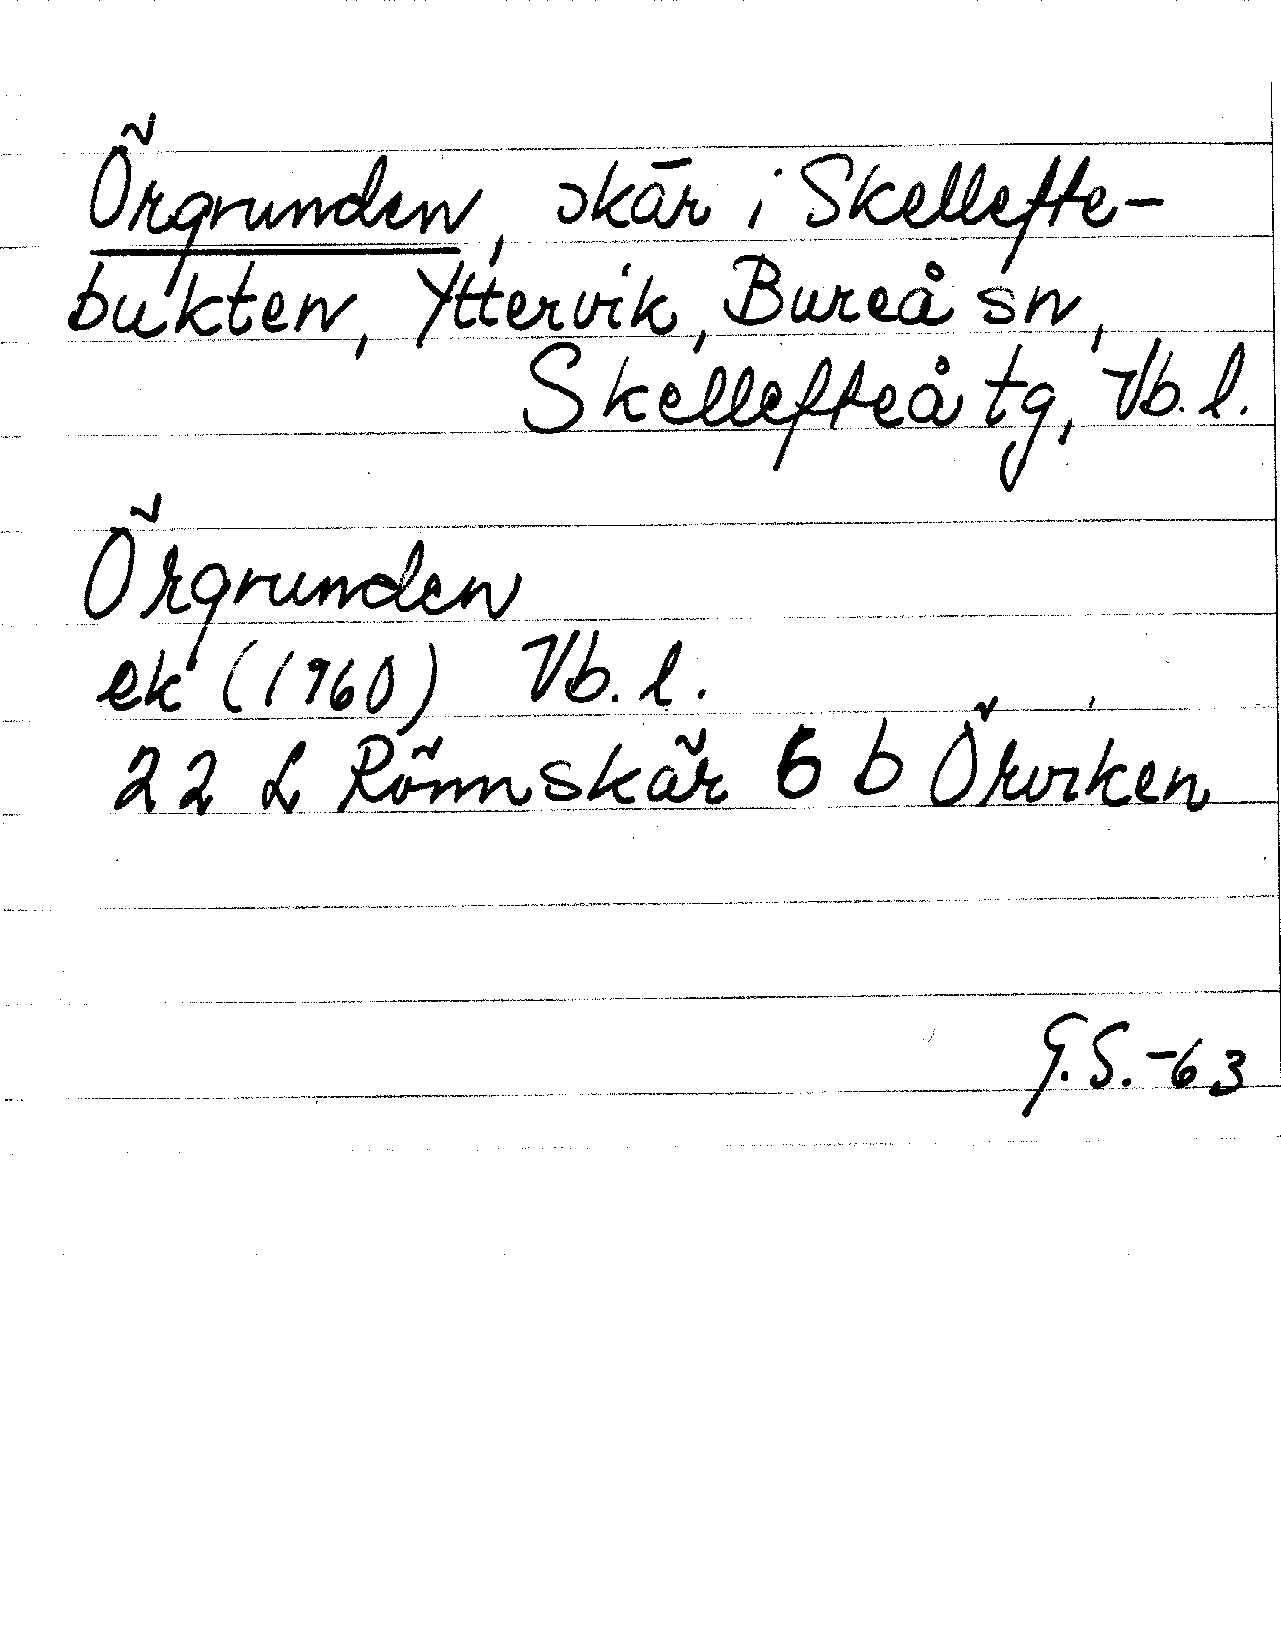 Örgrunden, skär i Skellefte-
bukten, Yttervik, Bureå sn,
Skellefteå tg, Vb. l.
Örgrunden
ek (1960) Vb. l.
22 L Rönnskär 6 b Örviken
G.S.-63